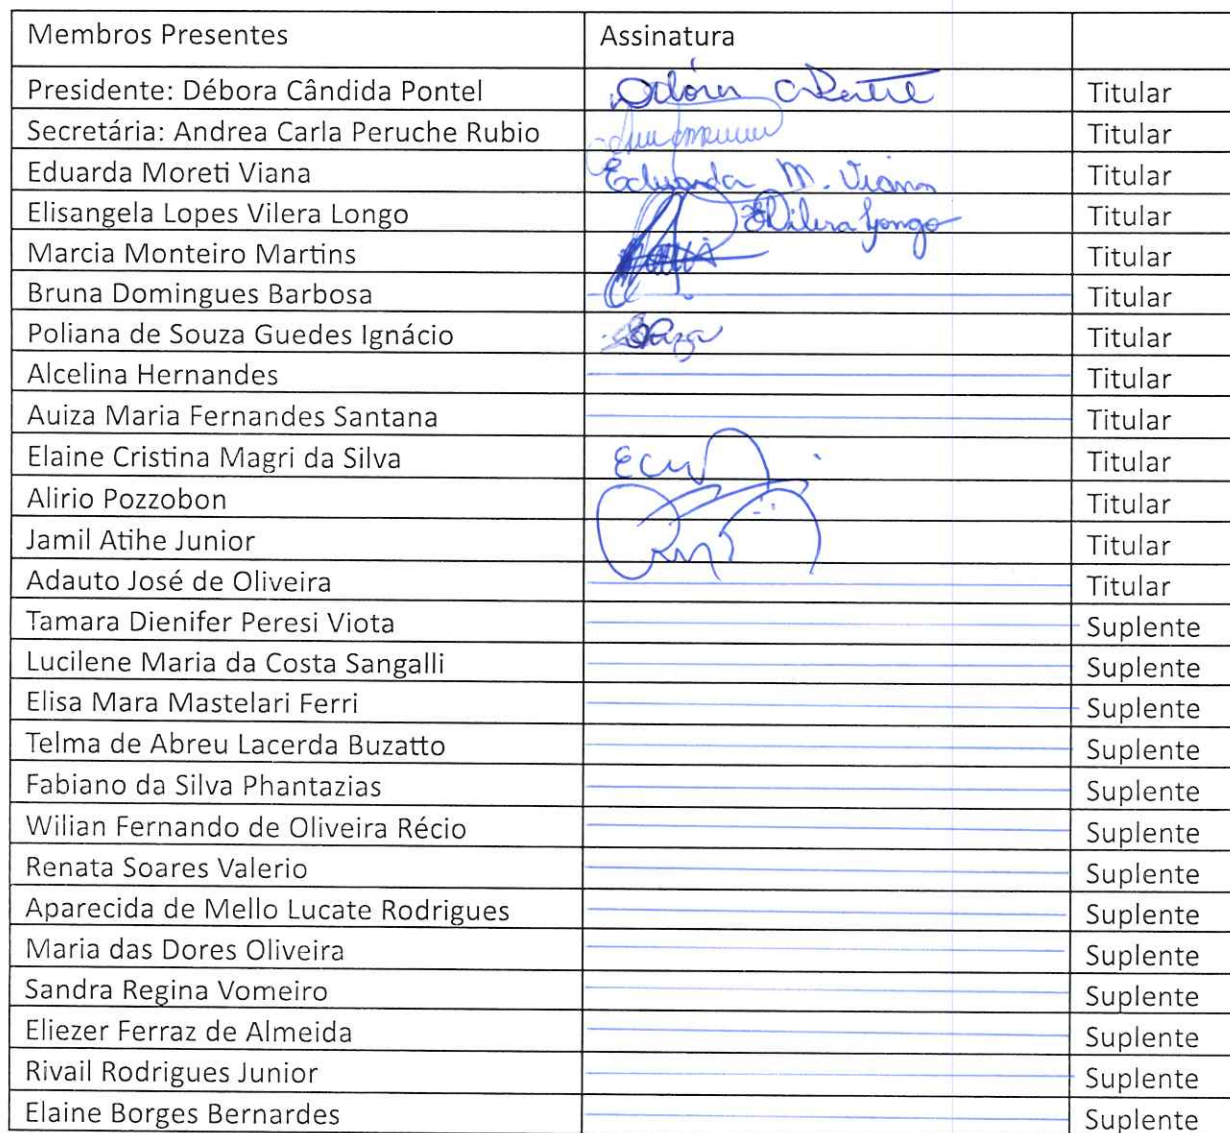 Membros Presentes Assinatura
Presidente: Débora Cândida Pontel Titular
Secretária: Andrea Carla Peruche Rubio Titular
Eduarda Moreti Viana Eduarda M. Viana Titular
Elisangela Lopes Vilera Longo EVilera Longo Titular
Marcia Monteiro Martins Titular
Bruna Domingues Barbosa Titular
Poliana de Souza Guedes Ignácio Titular
Alcelina Hernandes Titular
Auiza Maria Fernandes Santana Titular
Elaine Cristina Magri da Silva Titular
Alirio Pozzobon Titular
Jamil Atihe Junior Titular
Adauto José de Oliveira Titular
Tamara Dienifer Peresi Viota Suplente
Lucilene Maria da Costa Sangalli Suplente
Elisa Mara Mastelari Ferri Suplente
Telma de Abreu Lacerda Buzatto Suplente
Fabiano da Silva Phantazias Suplente
Wilian Fernando de Oliveira Récio Suplente
Renata Soares Valerio Suplente
Aparecida de Mello Lucate Rodrigues Suplente
Maria das Dores Oliveira Suplente
Sandra Regina Vomeiro Suplente
Eliezer Ferraz de Almeida Suplente
Rivail Rodrigues Junior Suplente
Elaine Borges Bernardes Suplente